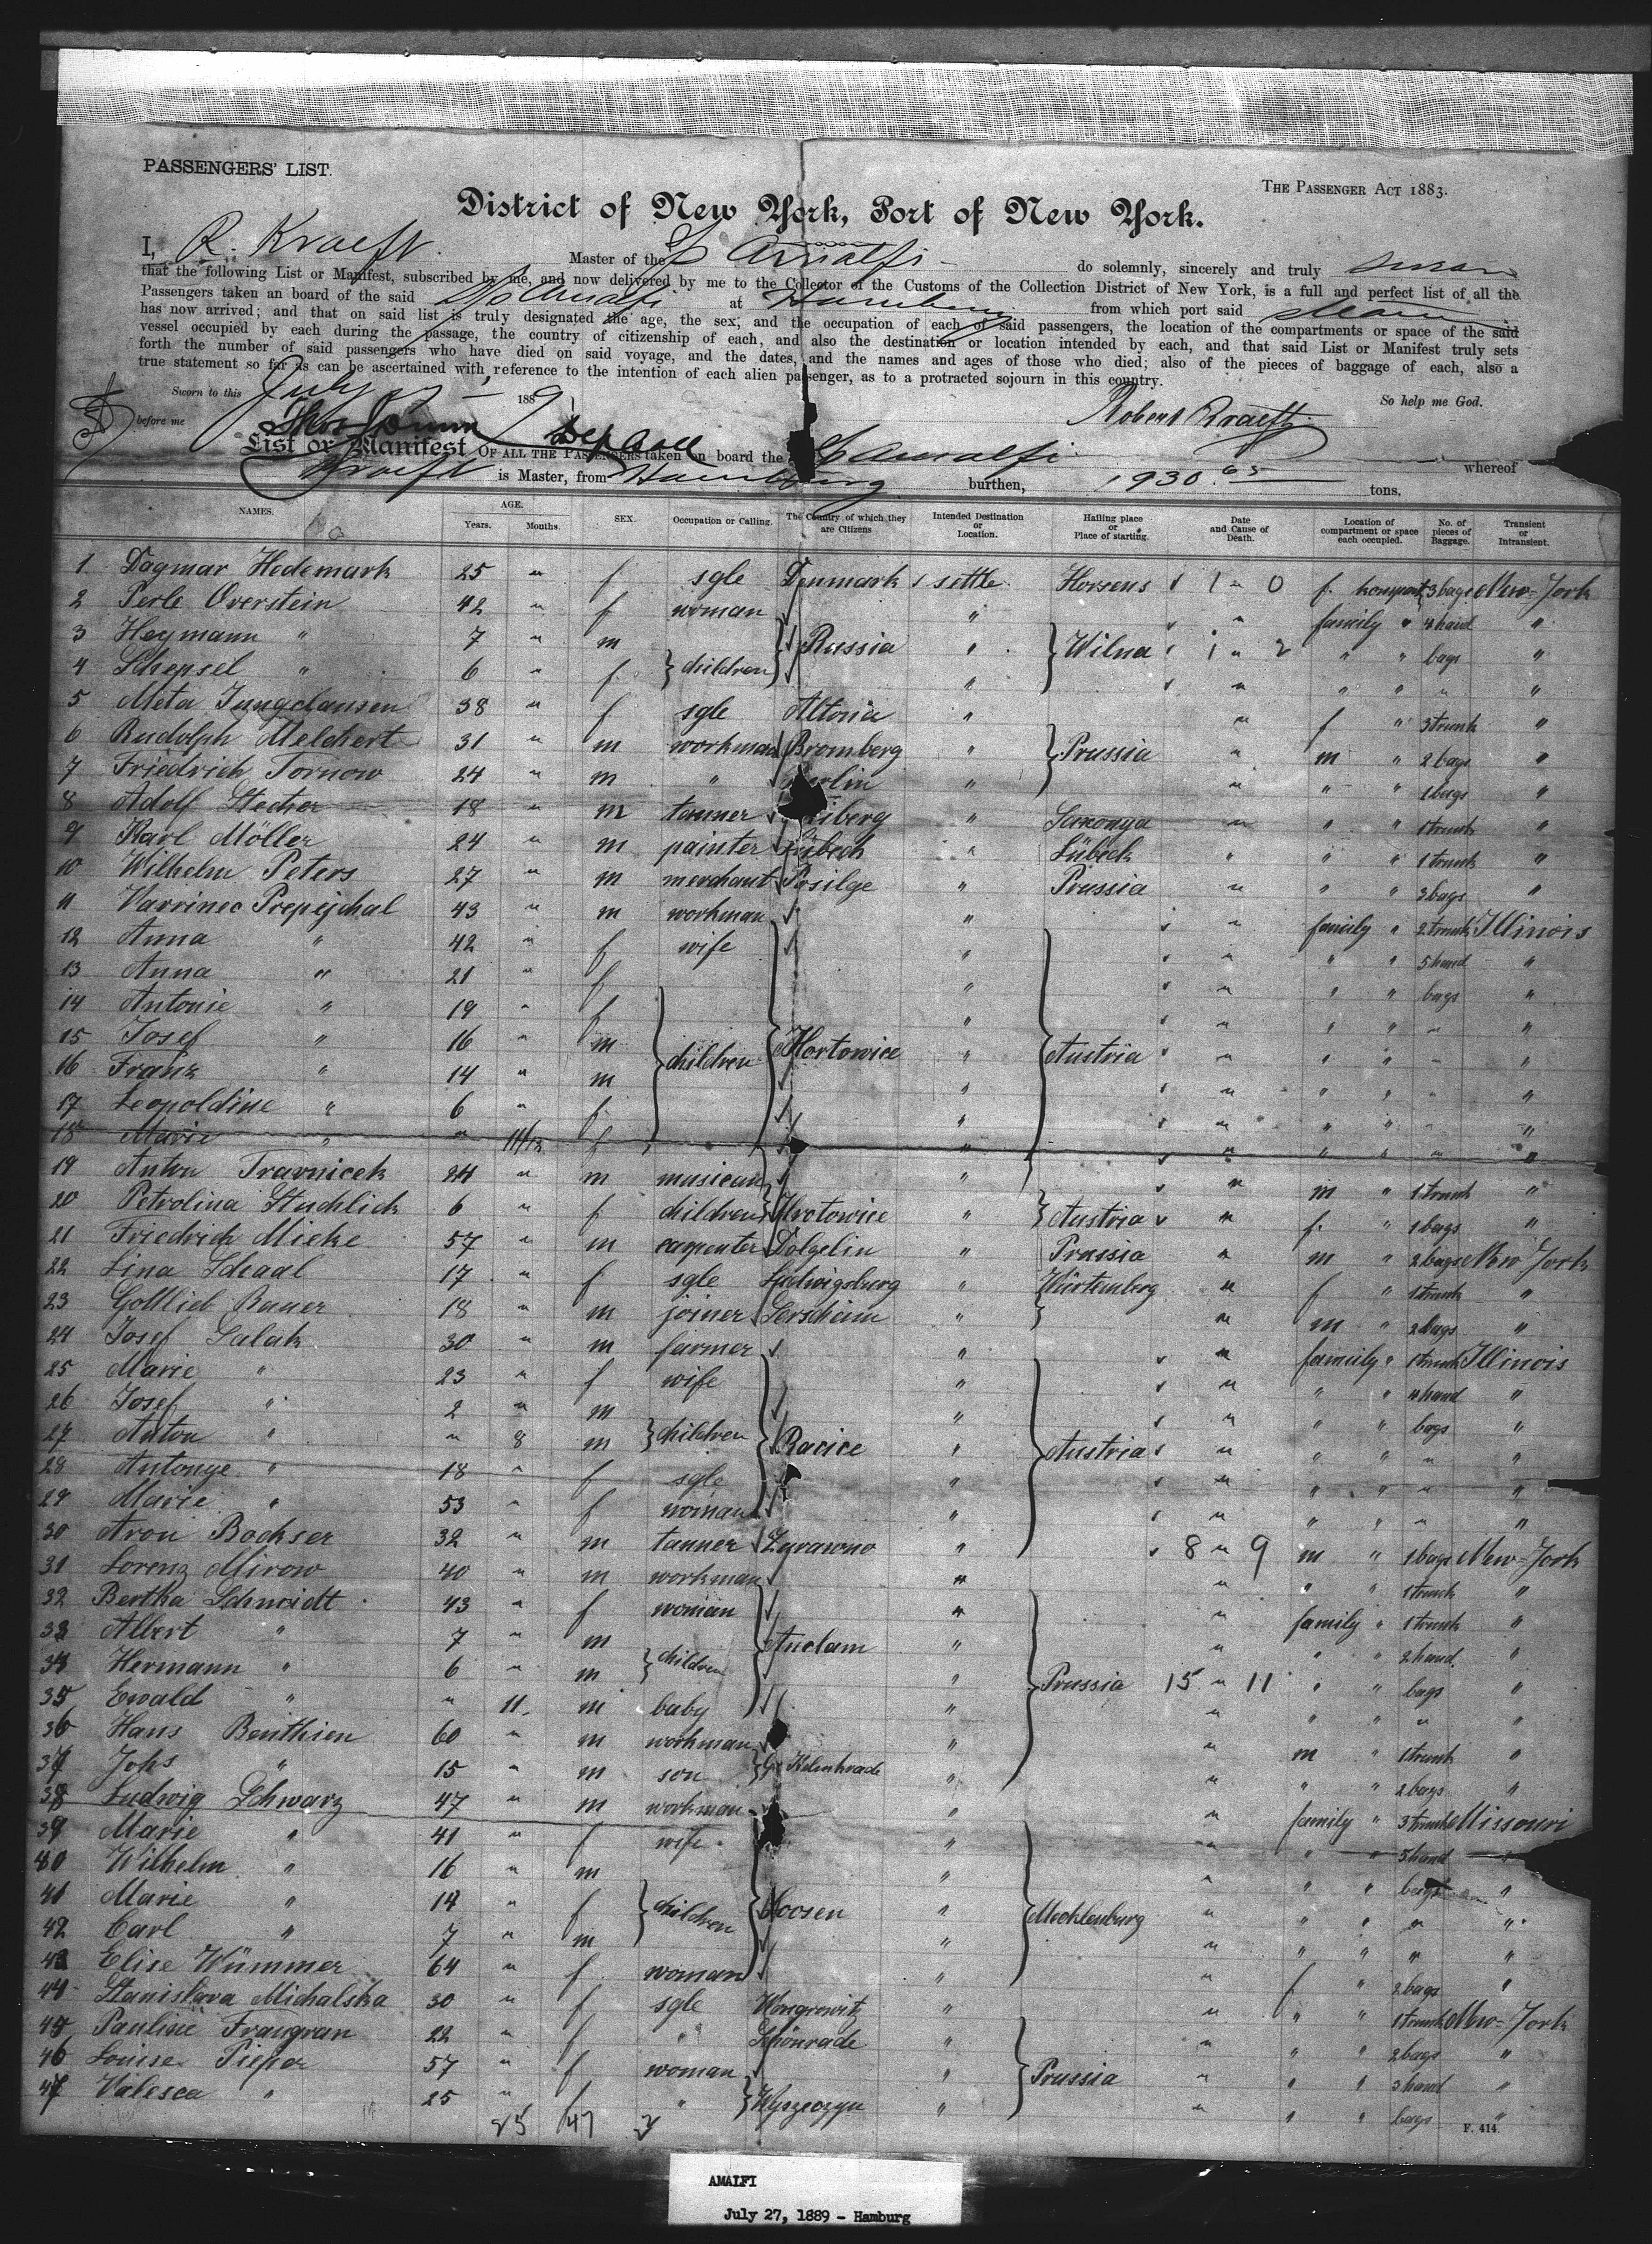 PASSENGERS' LIST.
THE PASSENGER ACT 1883.
District of New York, Port of New York.
I, R. Kraeft Master of the SS Amalfi do solemnly, sincerely and truly swear
that the following List or Manifest, subscribed by me, and now delivered by me to the Collector of the Customs of the Collection District of New York, is a full and perfect list of all the
Passengers taken on board of the said SS Amalfi at Hamburg from which port said
has now arrived; and that on said list is truly designated the age, the sex, and the occupation of each of said passengers, the location of the compartments or space of the said
vessel occupied by each during the passage, the country of citizenship of each, and also the destination or location intended by each, and that said List or Manifest truly sets
forth the number of said passengers who have died on said voyage, and the dates, and the names and ages of those who died; also of the pieces of baggage of each, also a
true statement so far as can be ascertained with reference to the intention of each alien passenger, as to a protracted sojourn in this country.
Sworn to this July 27 1889 So help me God.
before me Robert Kraeft
List or Manifest OF ALL THE PASSENGERS taken on board the SS Amalfi whereof
Kraeft is Master, from Hamburg burthen, 1930.65 tons.
NAMES. AGE. Years. Months. SEX. Occupation or Calling. The Country of which they are Citizens. Intended Destination or Location. Hailing place or Place of starting. Date and Cause of Death. Location of compartment or space each occupied. No. of pieces of Baggage. Transient or Intransient.
1 Dagmar Hedemark 25 " f sgle Denmark settle Horsens 1 " 0 f. 3 bags New-York
2 Perle Overstein 42 " f woman " " family " 4 hand "
3 Heymann " 7 " m Russia " Wilna 1 " 2 " " bags "
4 Schepsel " 6 " f. children " " " " " "
5 Meta Jungclausen 38 " f sgle Altona " " f " 3 trunk "
6 Rudolph Melchert 31 " m workman Bromberg " Prussia " m " 2 bags "
7 Friedrich Tornow 24 " m " Berlin " " " " 1 bags "
8 Adolf Stecher 18 " m tanner " Saxonya " " " 1 trunk "
9 Karl Möller 24 " m painter Lübeck " Lübeck " " " 1 trunk "
10 Wilhelm Peters 27 " m merchant Posilge " Prussia " " " 3 bags "
11 Varrinec Prepejchal 43 " m workman " " family " 2 trunk Illinois
12 Anna " 42 " f wife " " " " 5 hand "
13 Anna " 21 " f " " " bags "
14 Antonie " 19 " f " " " " " "
15 Josef " 16 " m children Hortowice " Austria " " " " "
16 Franz " 14 " m " " " " " "
17 Leopoldine " 6 " f. " " " " " "
18 Marie " " 11/12 f " " " " " "
19 Anton Travnicek 24 " m musican " " m " 1 trunk "
20 Petrolina Stuchlick 6 " f children Hrotowice " Austria " f. " 1 bags "
21 Friedrich Mieke 57 " m carpenter Dolgelin " Prussia " m " 2 bags New York
22 Lina Schaal 17 " f sgle Ludwigsburg " Würtemberg " f " 1 trunk "
23 Gottlieb Bauer 18 " m joiner Sersheim " " m " 2 bags "
24 Josef Salak 30 " m farmer " " family " 1 trunk Illinois
25 Marie " 23 " f wife " " " " 4 hand "
26 Josef " 2 " m " " " " bags "
27 Anton " " 8 m children Racice " Austria " " " " "
28 Antonye " 18 " f sgle " " " " " "
29 Marie " 53 " f woman " " " " " "
30 Aron Bockser 32 " m tanner Zurawno " 8 " 9 m " 1 bags New-York
31 Lorenz Mirow 40 " m workman " " " " 1 trunk "
32 Bertha Schmidt 43 " f woman " " family " 1 trunk "
33 Albert " 7 " m Anclam " " " " 2 hand "
34 Hermann " 6 " m children " Prussia 15 " 11 " " bags "
35 Ewald " " 11 m baby " " " " " "
36 Hans Benthien 60 " m workman " " m " 1 trunk "
37 Johs " 15 " m son " " " " 2 bags "
38 Ludwig Schwarz 47 " m workman " " family " 3 trunk Missouri
39 Marie " 41 " f wife " " " " 5 hand "
40 Wilhelm " 16 " m " " " " bags "
41 Marie " 14 " f children Roosen " Mecklenburg " " " " "
42 Carl " 7 " m " " " " " "
43 Elise Wümmer 64 " f. woman " " f " 2 bags "
44 Stanislava Michalska 30 " f sgle Wongrowitz " " " " 1 trunk New-York
45 Pauline Fraugran 22 " f " Schönrade " " " " 2 bags "
46 Louise Pieper 57 " f woman " Prussia " " " 3 hand "
47 Valesca " 25 " f " " " " " bags "
25 47
F. 414.
AMALFI
July 27, 1889 - Hamburg